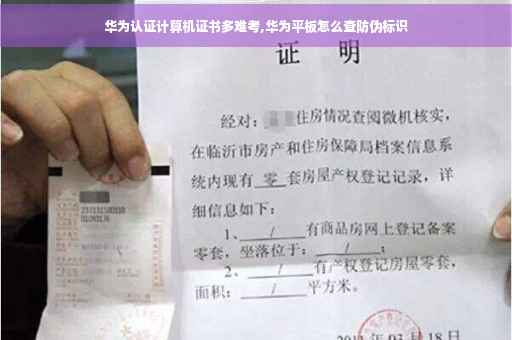 华为认证计算机证书多难考,华为平板怎么查防伪标识
证 明
经对: 住房情况查阅微机核实,
在临沂市房产和住房保障局档案信息系
统内现有 零 套房屋产权登记记录, 详
细信息如下:
1、 / 有商品房网上登记备案
零套, 坐落位于: / ;
2、 / 有产权登记房屋零套,
面积: / 平方米。
03 月 18 日